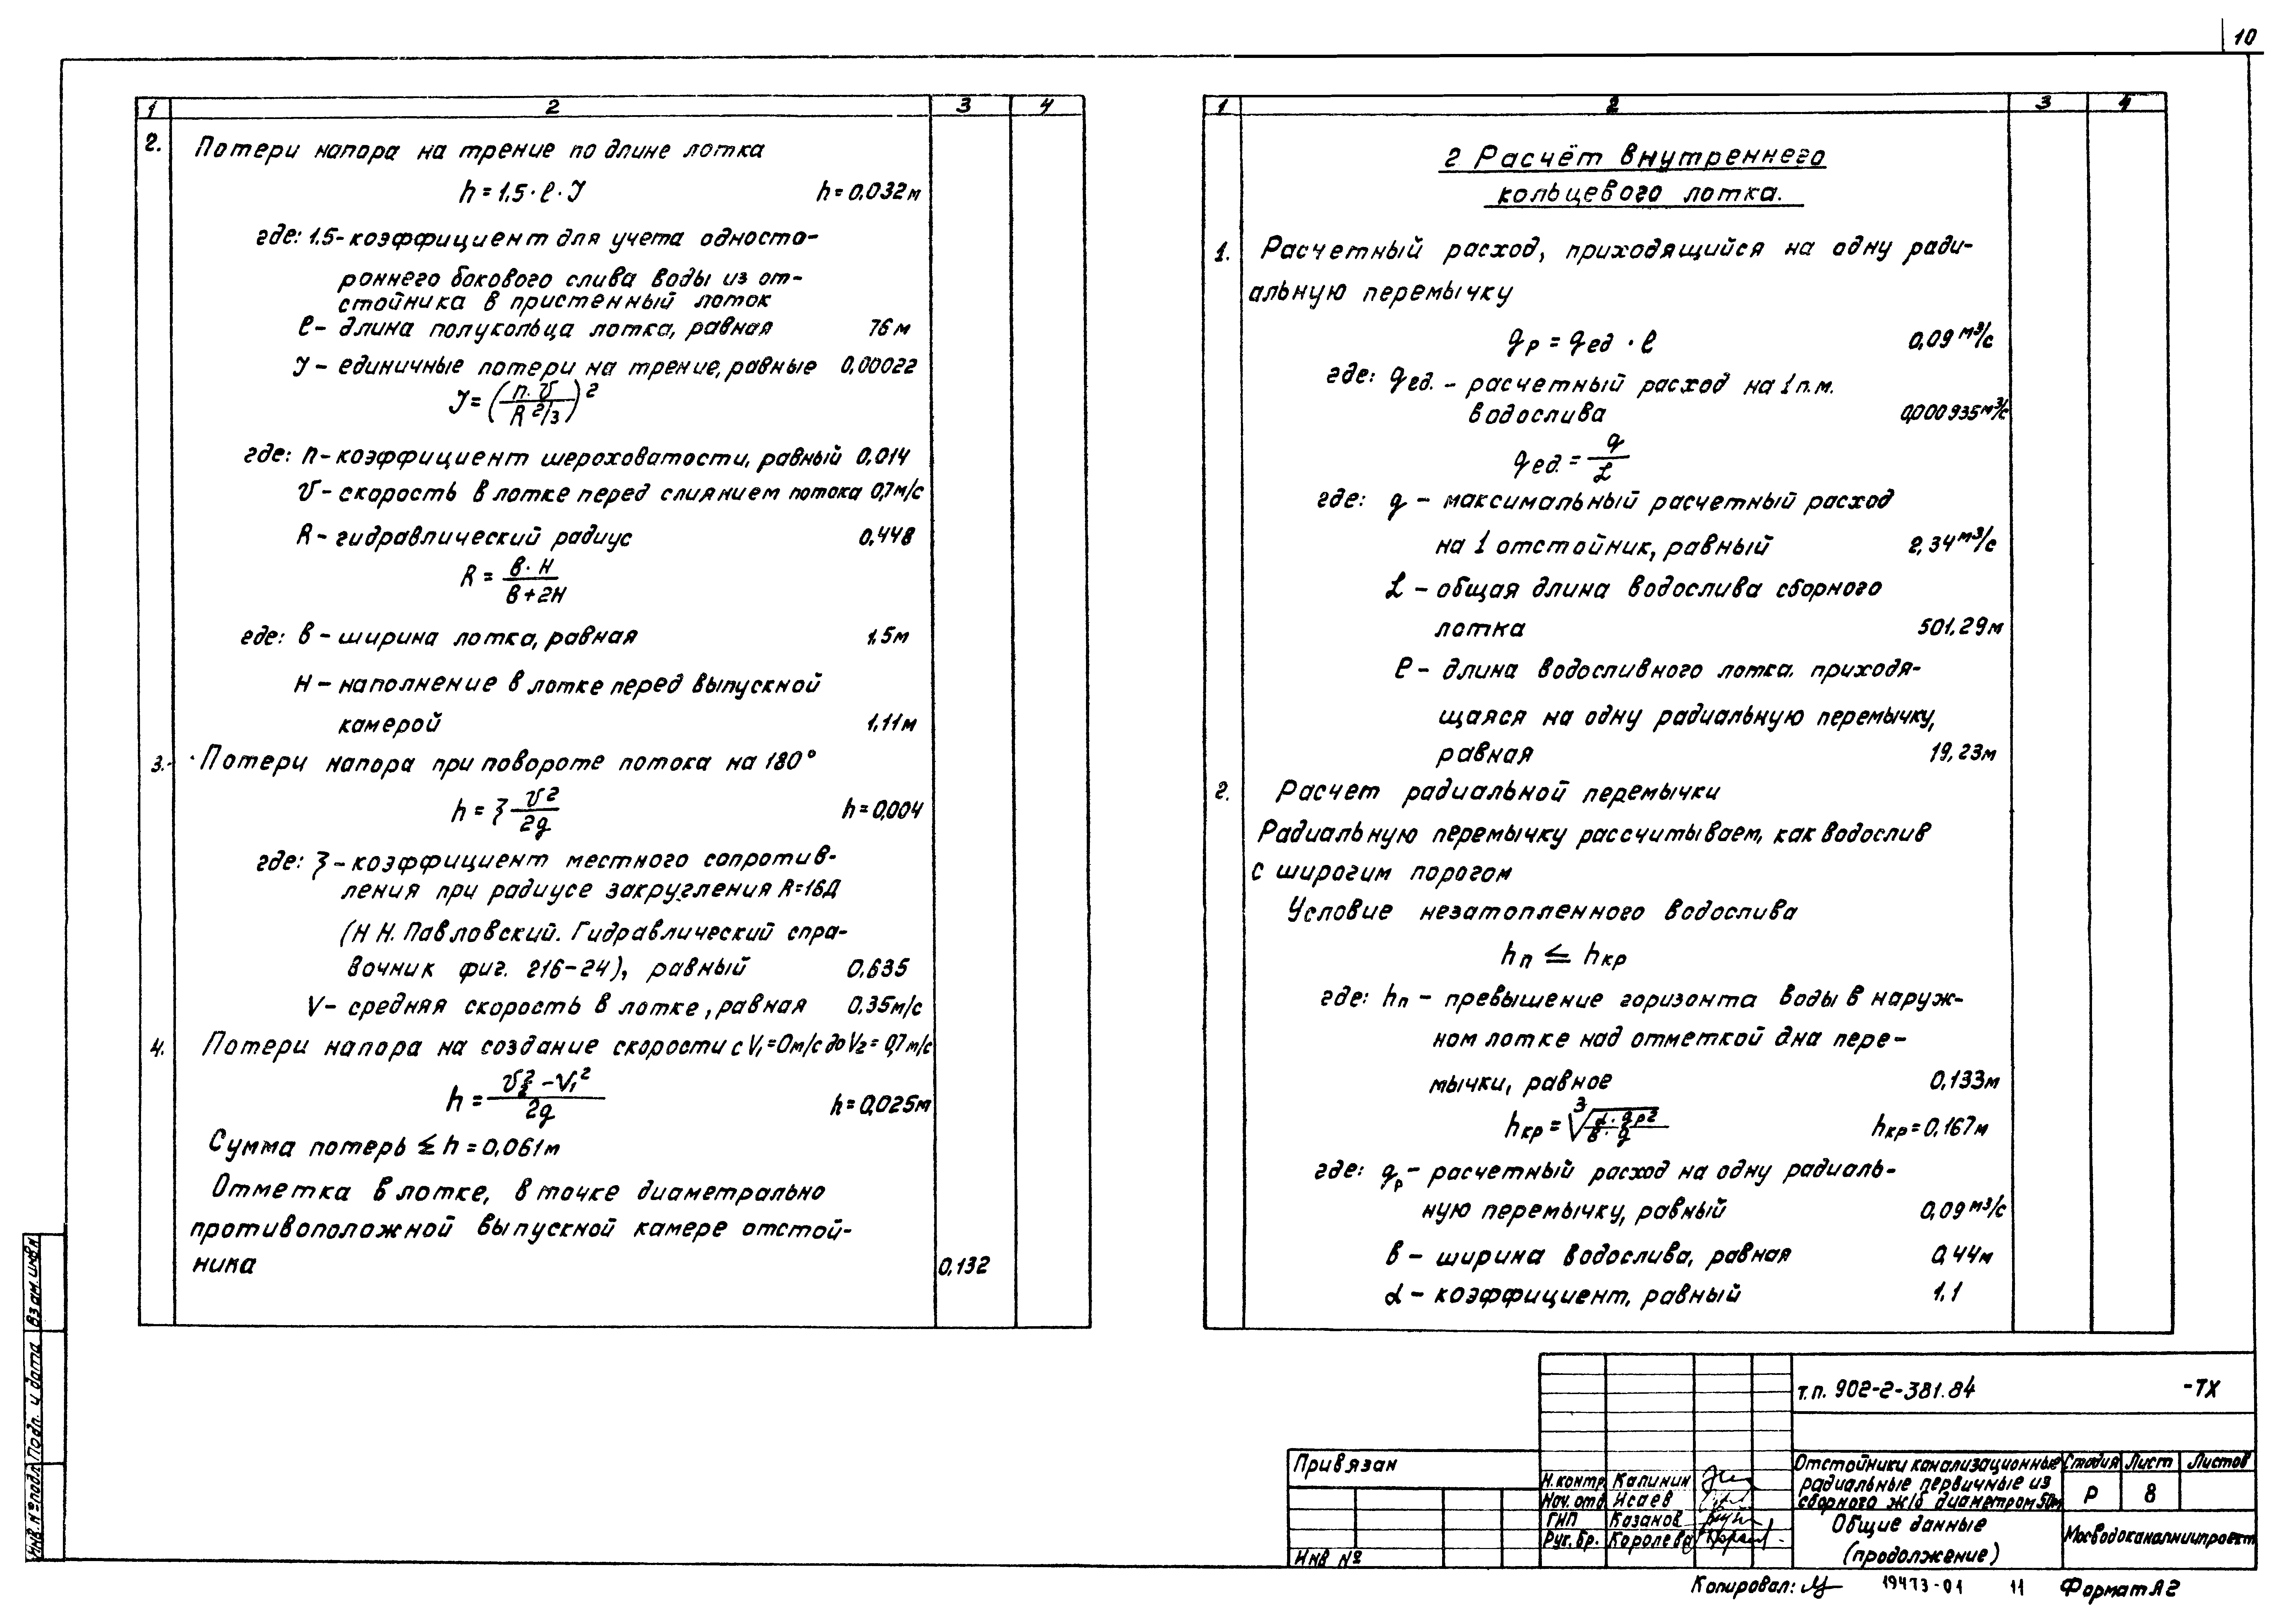 10
1 2 3 4
2. Потери напора на трение по длине лотка
h = 1,5 · ℓ · J h = 0,032м
где: 1,5 - коэффициент для учета односто-
роннего бокового слива воды из от-
стойника в пристенный лоток
ℓ - длина полукольца лотка, равная 76 м
J - единичные потери на трение, равные 0,00022
J = (n. v / R 2/3)²
где: n - коэффициент шероховатости, равный 0,014
v - скорость в лотке перед слиянием потока 0,7 м/с
R - гидравлический радиус 0,448
R = в · H / в + 2H
где: в - ширина лотка, равная 1,5м
H - наполнение в лотке перед выпускной
камерой 1,11м
3. Потери напора при повороте потока на 180°
h = ξ v² / 2g h = 0,004
где: ξ - коэффициент местного сопротив-
ления при радиусе закругления R=16Д
(Н Н. Павловский. Гидравлический спра-
вочник фиг. 216-24), равный 0,635
V - средняя скорость в лотке, равная 0,35м/с
4. Потери напора на создание скорости с V₁ = 0м/с до V₂ = 0,7 м/с
h = v₂² - V₁² / 2g h = 0,025м
Сумма потерь Σ h = 0,061м
Отметка в лотке, в точке диаметрально
противоположной выпускной камере отстой-
ника 0,132
1 2 3 4
2 Расчёт внутреннего
кольцевого лотка.
1. Расчетный расход, приходящийся на одну ради-
альную перемычку
qр = qед · ℓ 0,09 м³/с
где: qед. - расчетный расход на 1 п.м.
водослива 0,000935 м³/с
qед. = q / L
где: q - максимальный расчетный расход
на 1 отстойник, равный 2,34 м³/с
L - общая длина водослива сборного
лотка 501,29м
ℓ - длина водосливного лотка, приходя-
щаяся на одну радиальную перемычку,
равная 19,23м
2. Расчет радиальной перемычки
Радиальную перемычку рассчитываем, как водослив
с широгим порогом
Условие незатопленного водослива
hп ≤ hкр
где: hп - превышение горизонта воды в наруж-
ном лотке над отметкой дна пере-
мычки, равное 0,133м
hкр = ³√(α · qр² / в · g) hкр = 0,167м
где: qр - расчетный расход на одну радиаль-
ную перемычку, равный 0,09 м³/с
в - ширина водослива, равная 0,44м
α - коэффициент, равный 1,1
Взам. инв №
Подп. и дата
Инв. № подл
т.п. 902-2-381.84 -ТХ
Привязан
Инв №
Н.контр. Калинин
Нач. отд Исаев
ГИП Казанов
Рук. бр. Королева
Отстойники канализационные
радиальные первичные из
сборного ж/б диаметром 50м
Стадия Лист Листов
Р 8
Общие данные
(продолжение)
Мосводоканалниипроект
Копировал: 19473-01 11 Формат А2